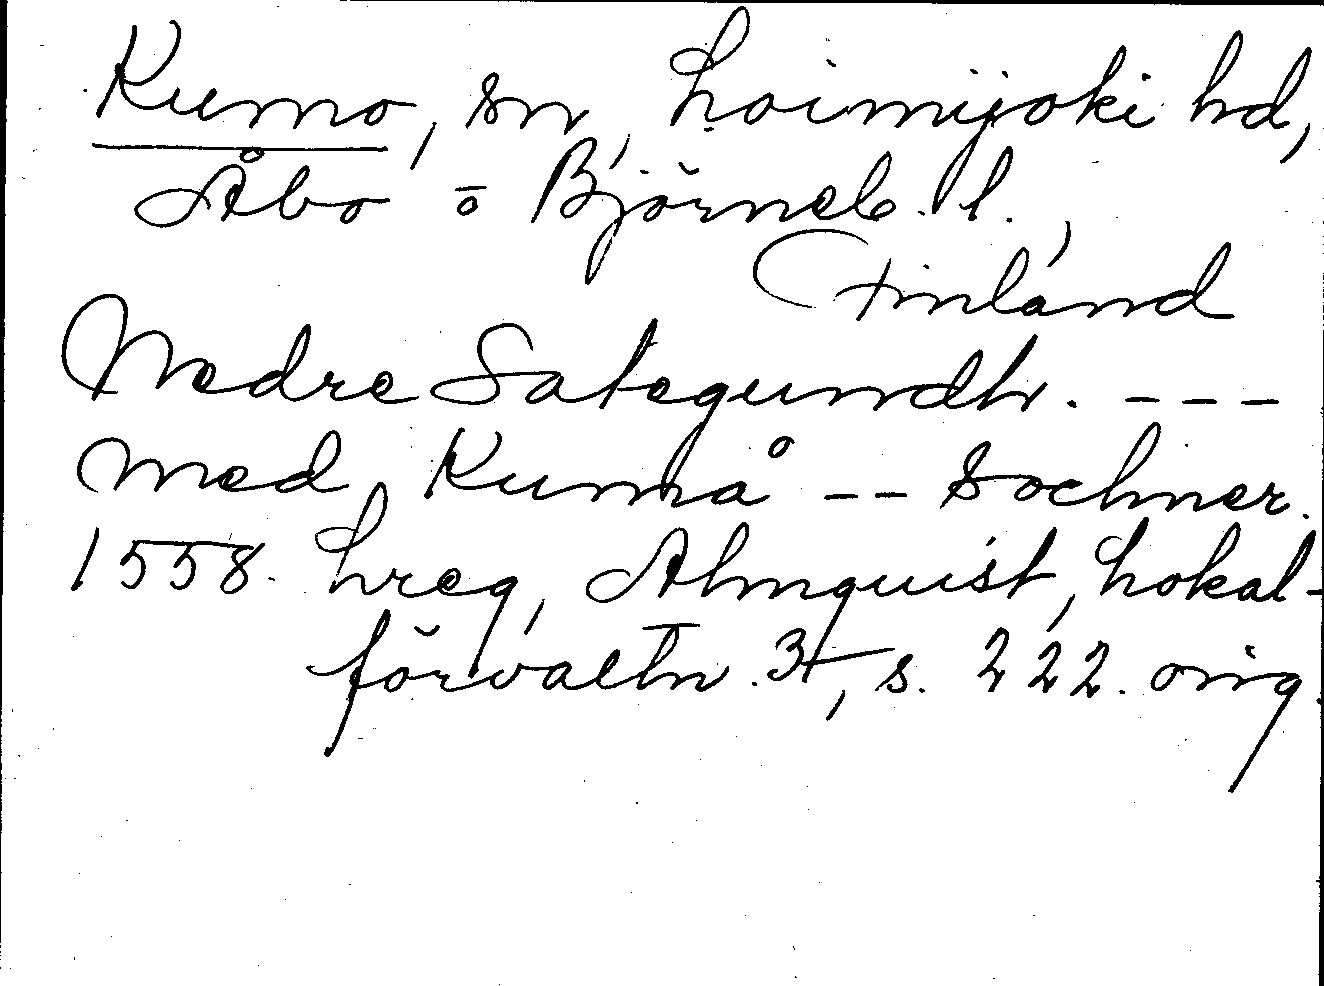 Kumo, sn, Loimijoki hd,
Åbo o Björneb. l.,
Finland
Nedre Sategundh. ---
med Kumå -- Sochner.
1558. Lreg, Almquist, Lokal-
förvaltn. 3, s. 222. orig.